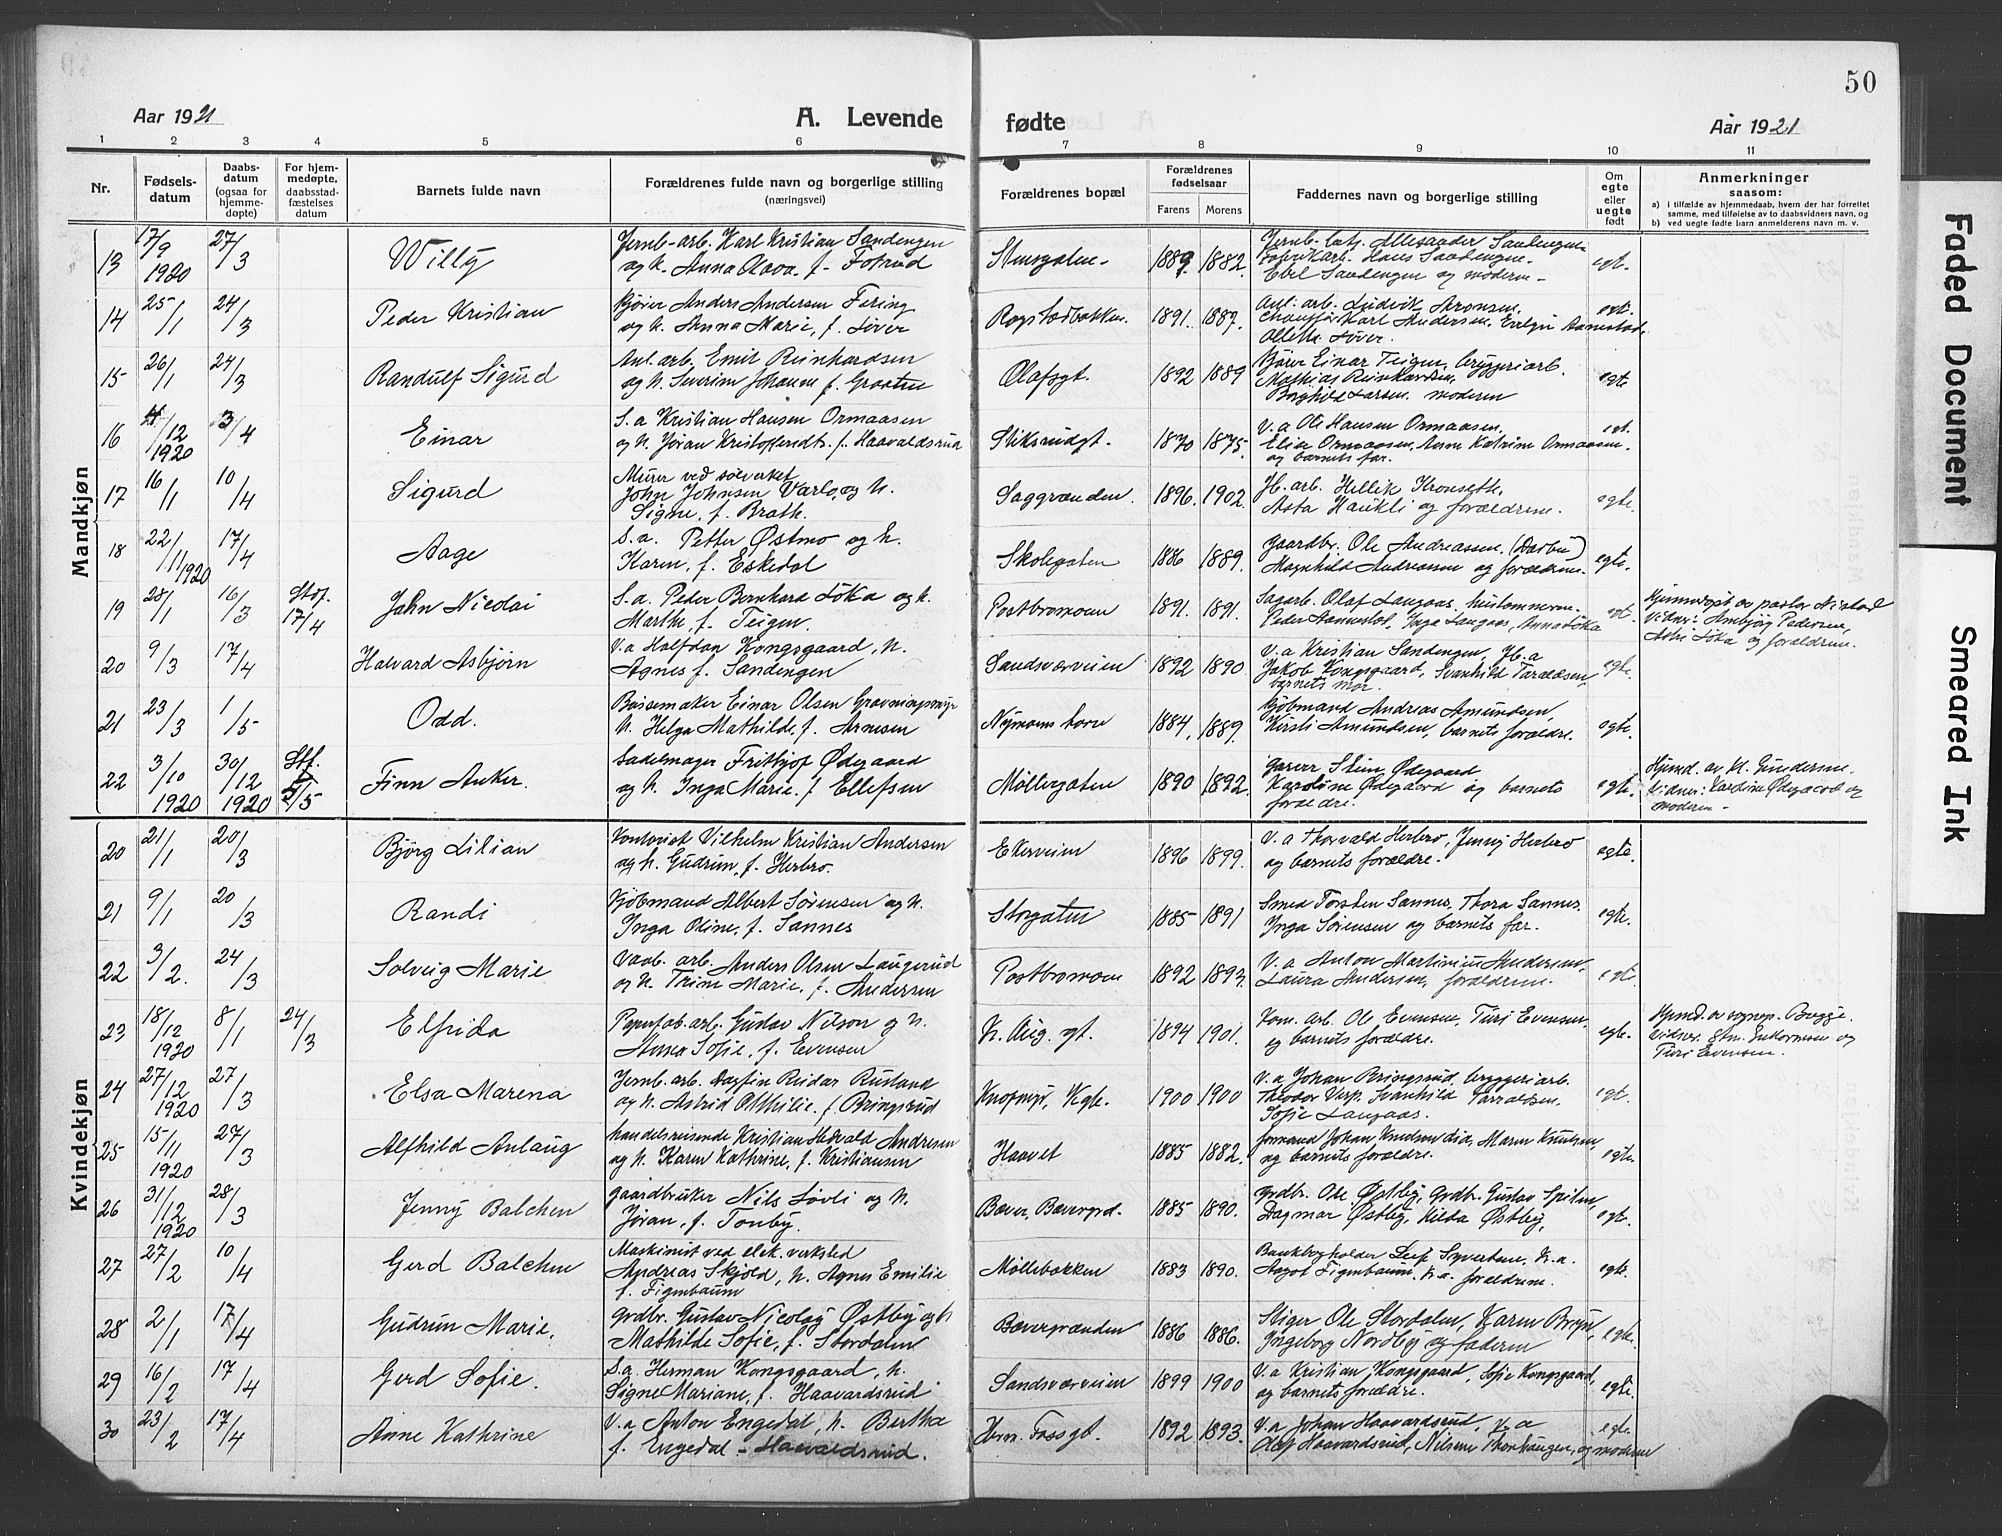 50
Aar 1921
A. Levende
fødte
Aar 1921
1 2 3 4 5 6 7 8 9 10 11
Nr.
Fødsels-
datum
Daabs-
datum
(ogsaa for
hjemme-
døpte)
For hjem-
medøpte,
daabsstad-
fæstelses
datum
Barnets fulde navn
Forældrenes fulde navn og borgerlige stilling
(næringsvei)
Forældrenes bopæl
Forældrenes
fødselsaar
Farens Morens
Faddernes navn og borgerlige stilling
Om
egte
eller
uegte
født
Anmerkninger
saasom:
a) i tilfælde av hjemmedaab, hvem der har forrettet
samme, med tilføielse av to daabsvidners navn, og
b) ved uegte fødte barn anmelderens navn m. v.
Mandkjøn
13 17/9 1920 27/3 Willy
Jernb-arb. Karl Kristian Sandengen
og h. Anna Olava f.
1889 1882 egte.
Ebel Sandengen og moderen
14 25/1 24/3 Peder Kristian
Kjører Anders Andersen Foring
og h. Anna Marie, f. Løver
Rogstadbakken. 1891. 1887. egte.
Anl. arb. Ludvik Aronsen.
Chauffør Karl Andersen, Evelyn Aannestad,
Alletta Løver.
15 26/1 24/3 Randulf Sigurd
Anl. arb. Emil Reinhardsen
og h. Severine Johanne f.
Olafsgt. 1892 1889 egte
Kjører Einar Teigen, bryggeriarb.
Mathias Reinhardsen,
Borghild Larsen. moderen
16 /12 1920 3/4 Einar
S. a Kristian Hansen Ormaasen
og h. Jøran Kristoffersdt. f. Haavaldsrud
Stiksrudgt. 1870 1875. egt.
V. a Ole Hansen Ormaasen,
Elise Ormaasen, Anne Katrine Ormaasen.
og barnets far.
17 16/1 10/4 Sigurd
Murer ved sølverket
John Johnsen Varlo, og h.
Signe, f. Brath.
Saggrænden. 1896. 1902. egte.
Jb. arb. Hellik Kronseth,
Asta Haukli og forældrene.
18 22/11 1920 17/4 Aage
S. a. Petter Østmo og h.
Karen, f. Eskedal
Skolegaten 1886 1889. egte.
Gaardbr. Ole Andreassen, (Darbu)
Magnhild Andreassen og forældrene.
19 28/1 16/3 Stf. 17/4 John Nicolai
S. a. Peder Bernhard Løka og h.
Marthe, f. Teigen.
Postbromoen 1891. 1891. egt.
Sagarb. Olaf Langaas, hustomrerne
Peder Aannestad, Inga Langaas, Anna Løka
Hjemmedøpt av pastor Nistad
Vidner: Ambjørg Pedersen,
Løka og forældrene.
20 9/3 17/4 Halvard Asbjørn
V. a Halfdan Kongsgaard, h.
Agnes f. Sandengen
Sandsværveien 1892 1890 egte.
V. a Kristian Sandengen, Jb. a
Jakob Kongsgaard, Svanhild Taraldsen,
barnets mor.
21 23/3 1/5 Odd.
Bøssemaker Einar Olsen
h. Helga Mathilde, f. Arnesen
Nymoens torv 1884, 1889. egte.
Kjøbmand Andreas Amundsen,
Kirsti Amundsen, barnets forældre.
22 3/10 1920 30/12 1920 Stf. 5/5 Finn Anker.
Sadelmager Fritjof Ødegaard
og h. Inga Marie, f. Ellefsen
Møllegaten 1890 1892. egte.
Garver Stein Ødegaard
Karoline Ødegaard og barnets
forældre.
Hjemd. av
Vidner: Karoline Ødegaard og
moderen
Kvindekjøn
20 21/1 20/3 Bjørg Lilian
Kontorist Vilhelm Kristian Andersen
og h. Gudrun, f. Herbro.
Ekerveien 1896 1899. egte.
V. a Thorvald Herbro, Jenny Herbro
og barnets forældre.
21 9/1 20/3 Randi
Kjøbmand Albert Sørensen og h.
Inga Oline, f. Sannes
Storgaten 1885 1891 egte.
Smed Torsten Sannes, Thora Sannes.
Inga Sørensen og barnets far.
22 3/2. 24/3 Solveig Marie
Vaab. arb. Anders Olsen Laugerud
og h. Trine Marie, f. Andersen
Postbromoen 1892 1893. egt.
V. a Anton Martinius Andersen,
Laura Andersen, forældrene.
23 18/12 1920 8/1 24/3 Elfrida
Papirfab. arb. Gustav Nilson og h.
Anna Sofie, f. Evensen
1894 1901. egte.
Kom. arb. Ole Evensen, Turi Evensen,
og barnets forældre.
Hjemd. av sognep. Bugge.
Turi Evensen.
24 27/12 1920 27/3 Elsa Marena
Jernb. arb. Dagfin Reidar Rustand
og h. Astrid Othilie f. Bringsrud
1900 1900 egt.
V. a Johan Bringsrud, bryggeriarb.
Theodor Svanhild Taraldsen.
Sofie Langaas.
25 15/11 1920 27/3 Alfhild Anlaug
Handelsreisende Kristian Andresen
og h. Karen Kathrine, f. Kristiansen
Haavet 1885 1882. egte.
Formand Johan Knudsen, Maren Knutsen,
og barnets forældre.
26 31/12 1920 28/3 Jenny Balchen
Gaardbruker Nils Løvli og h.
Jøran, f. Tonby.
Bæver, Bævergrd. 1885 1890. egte.
Grdbr. Ole Østby, Grdbr. Gustav
Dagmar Østby, Hilda Østby,
27 27/2 10/4 Gerd Balchen
Maskinist ved elek. verksted
Andreas Skjold, h. Agnes Emilie
f. Figenbaum
Møllebakken 1883 1890. egte.
Bankbogholder Leif Syvertsen, K. a.
Aagot Figenbaum, K. a. forældrene.
28 2/1 17/4 Gudrun Marie,
Grdbr. Gustav Nicolay Østby og h
Mathilde Sofie, f. Stordalen
Bævergrænden 1886 1886. egte.
Stiger Ole Stordalen, Karen Bryn,
Ingeborg Nordby og faderen
29 16/2 17/4 Gerd Sofie.
S. a. Herman Kongsgaard, h.
Signe Mariane, f. Haavardsrud
Sandsværveien 1899 1900 egte.
V. a Kristian Kongsgaard, Sofie Kongsgaard,
og barnets forældre.
30 23/2 17/4 Anne Kathrine
V. a Anton Engedal, h. Bertha
f. Engedal - Haavaldsrud.
Hrm. Fossgt. 1892 1893. egte.
V. a Johan Haavardsrud, V. a
Olaf Haavardsrud, Nilsine Thorhaugen, og moderen
Faded Document
Smeared Ink